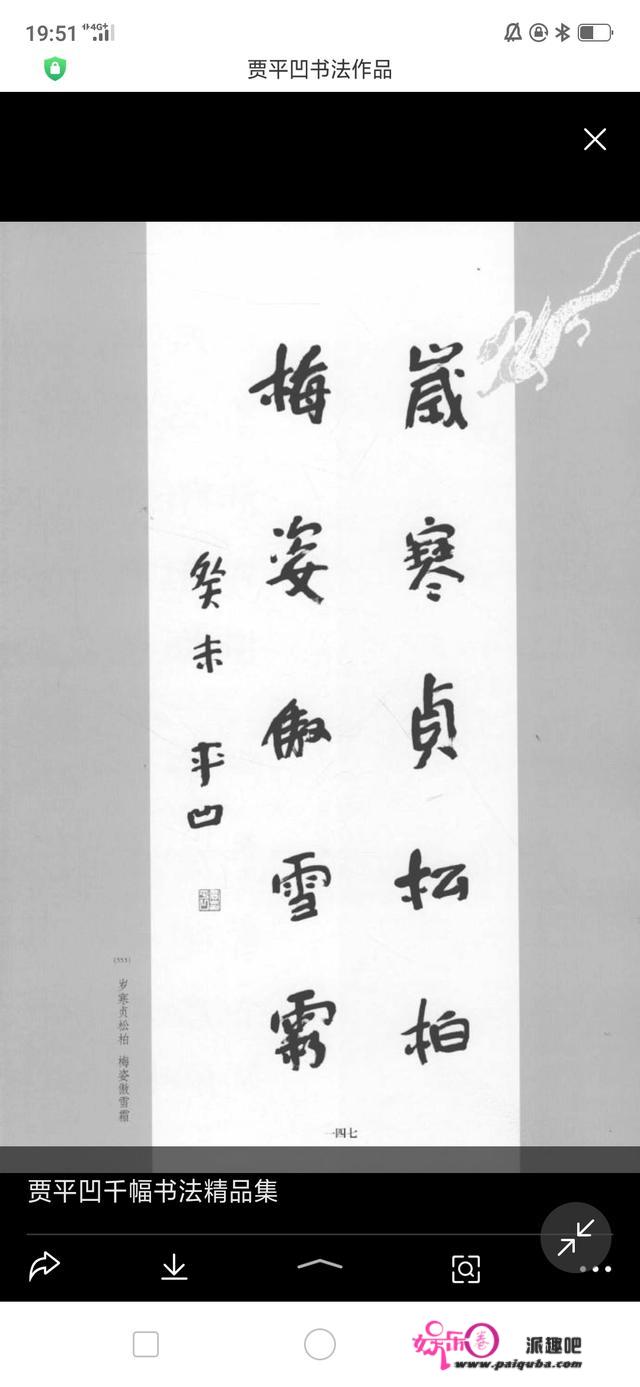 19:51 4G+
贾平凹书法作品
歲寒貞松柏
梅姿傲雪霜
癸未 平凹
(555)
岁寒贞松柏 梅姿傲雪霜
一四七
贾平凹千幅书法精品集
娱乐圈 派趣吧
www.paiquba.com